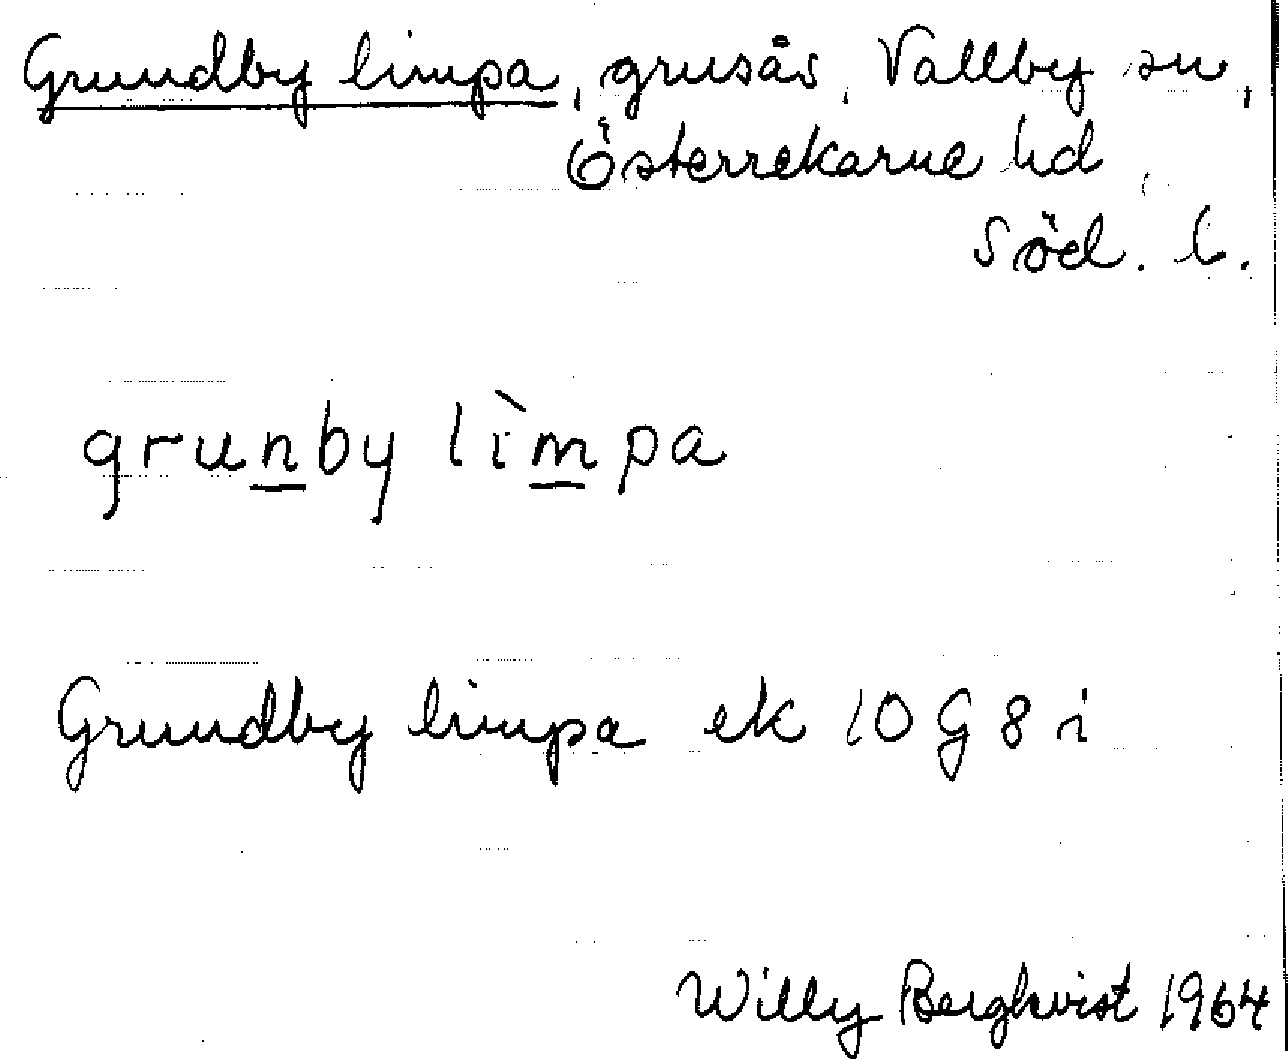 Grundby limpa, grusås, Vallby sn,
Österrekarne hd,
Söd. l.
grunby lìmpa
Grundby limpa ek 10 G 8 i
Willy Berghvist 1964